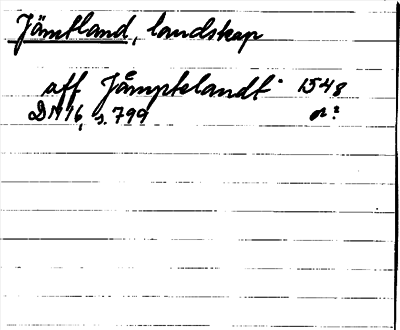 Jämtland, landskap
aff Jåmptelandt 1548
DN 16, s. 799 or?